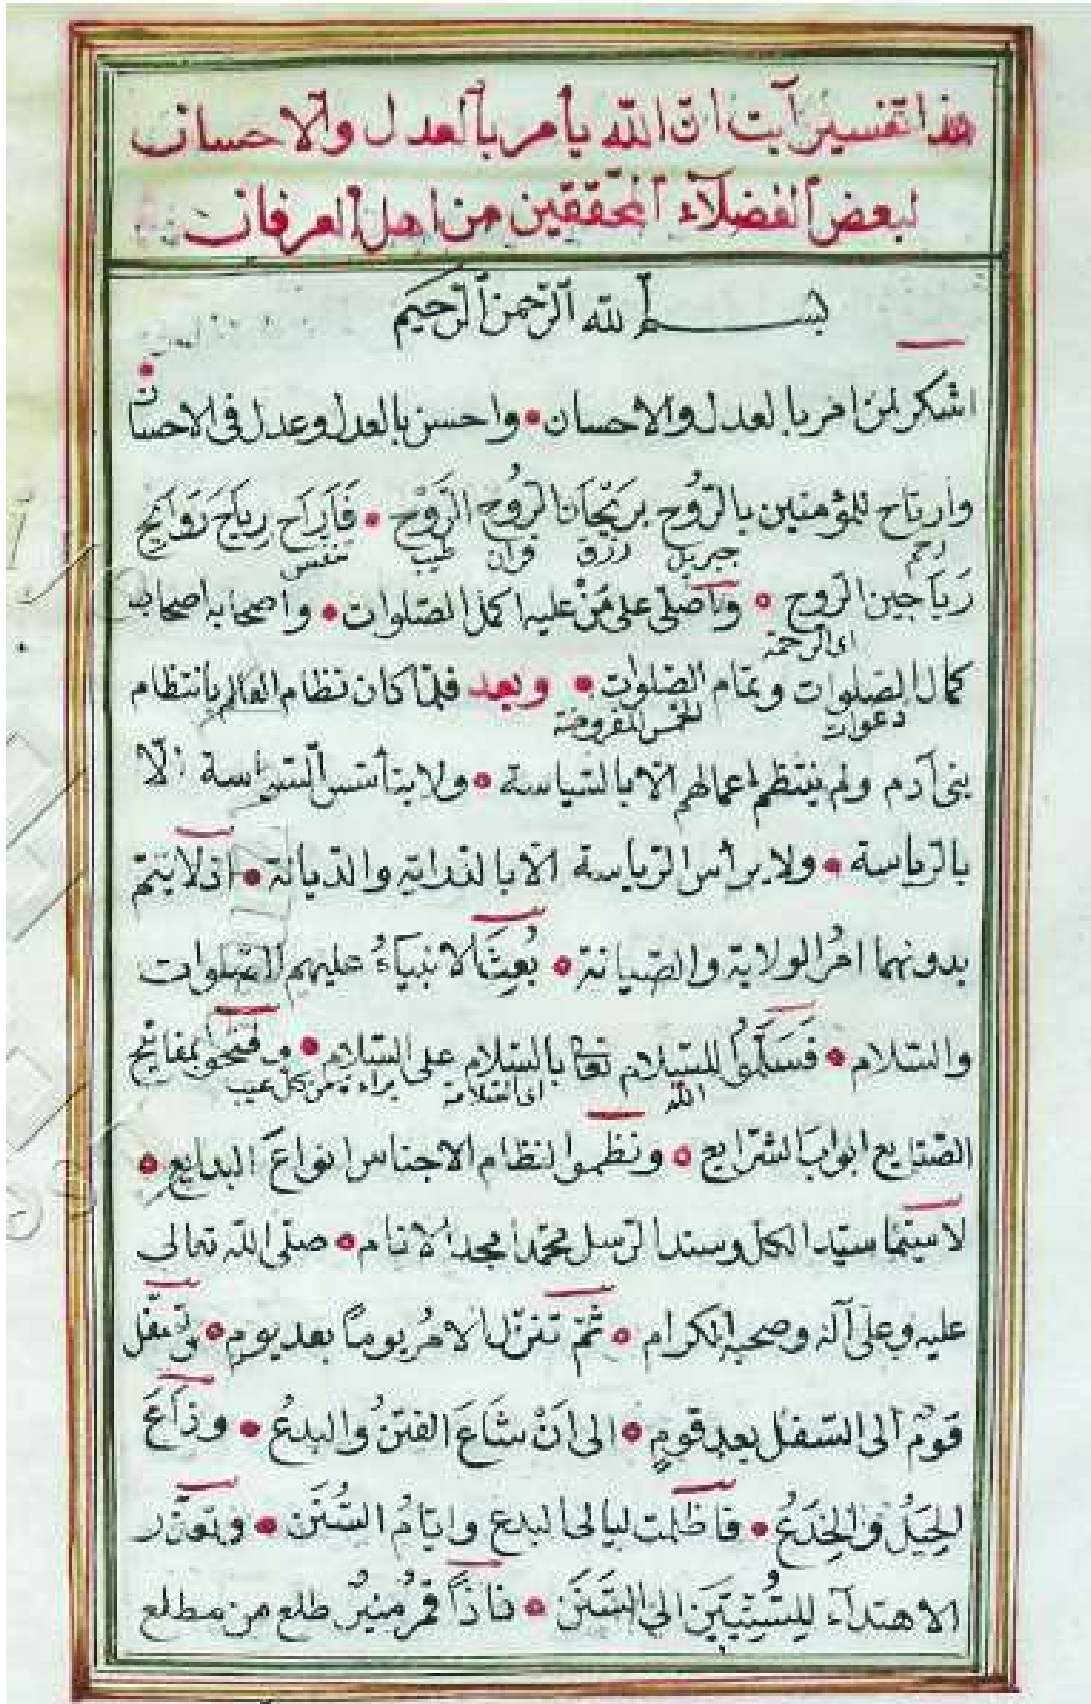 هذا تفسير آيت ان الله يأمر بالعدل والاحسان
لبعض الفضلآء المحققين من اهل العرفان
بسم الله الرحمن الرحيم
اشكر لمن امر بالعدل والاحسان • واحسن بالعدل وعدل فى الاحسان
وارتاح للمؤمنين بالرُّوح بريْحَان الرُّوح الرَّوْح • فَأَرَاح رياح رَوَايح
رحم جبريل رزق قران طيب تنفس
رَيَاحين الرَّوح • واصلّى على مَنْ عليه اكمل الصّلوات • واصحابه اصحاب
اى الرحمة
كمال الصلوات وتمام الصّلوات • وبعد فلمّا كان نظام العالم بانتظام
دعوات الخمس المفروضة
بنى آدم ولم ينتظم اعمالهم الّا بالسّياسة • ولا يتأسّس السّياسة الّا
بالرّياسة • ولا يرأس الرّياسة الّا بالدراية والدّيانة • اذ لا يتم
بدونهما امْرُ الولاية والصّيانة • بُعِثَ الانبيَاءُ عليهم الصّلوات
والسّلام • فَسَلَّمُوا للسّلام بالسّلام على السّلام • وفتحوا بمفاتيح
الله اى السّلامة براءة من كل عيب
الصّنايع ابوابَ الشّرايع • ونظموا لنظام الاجناس انواعَ البدايع •
لا سيّما سيّد الكل وسند الرّسل محمّد امجد الانام • صلّى الله تعالى
عليه وعلى آله وصحبه الكرام • ثمّ تنزّل الامْرُ يومًا بعد يوم • وتسفّل
قومٌ الى السّفل بعد قومٍ • الى اَنْ شَاعَ الفتنُ والبدعُ • وذَاعَ
الحِيَلُ والخِدَعُ • فاظلمت ليالى البدع وايّامُ السُّنَن • وتعذّر
الاهتدآء للسُّنّيّين الى السَّنَن • فاذًا قمرٌ منيرٌ طلع من مطلع